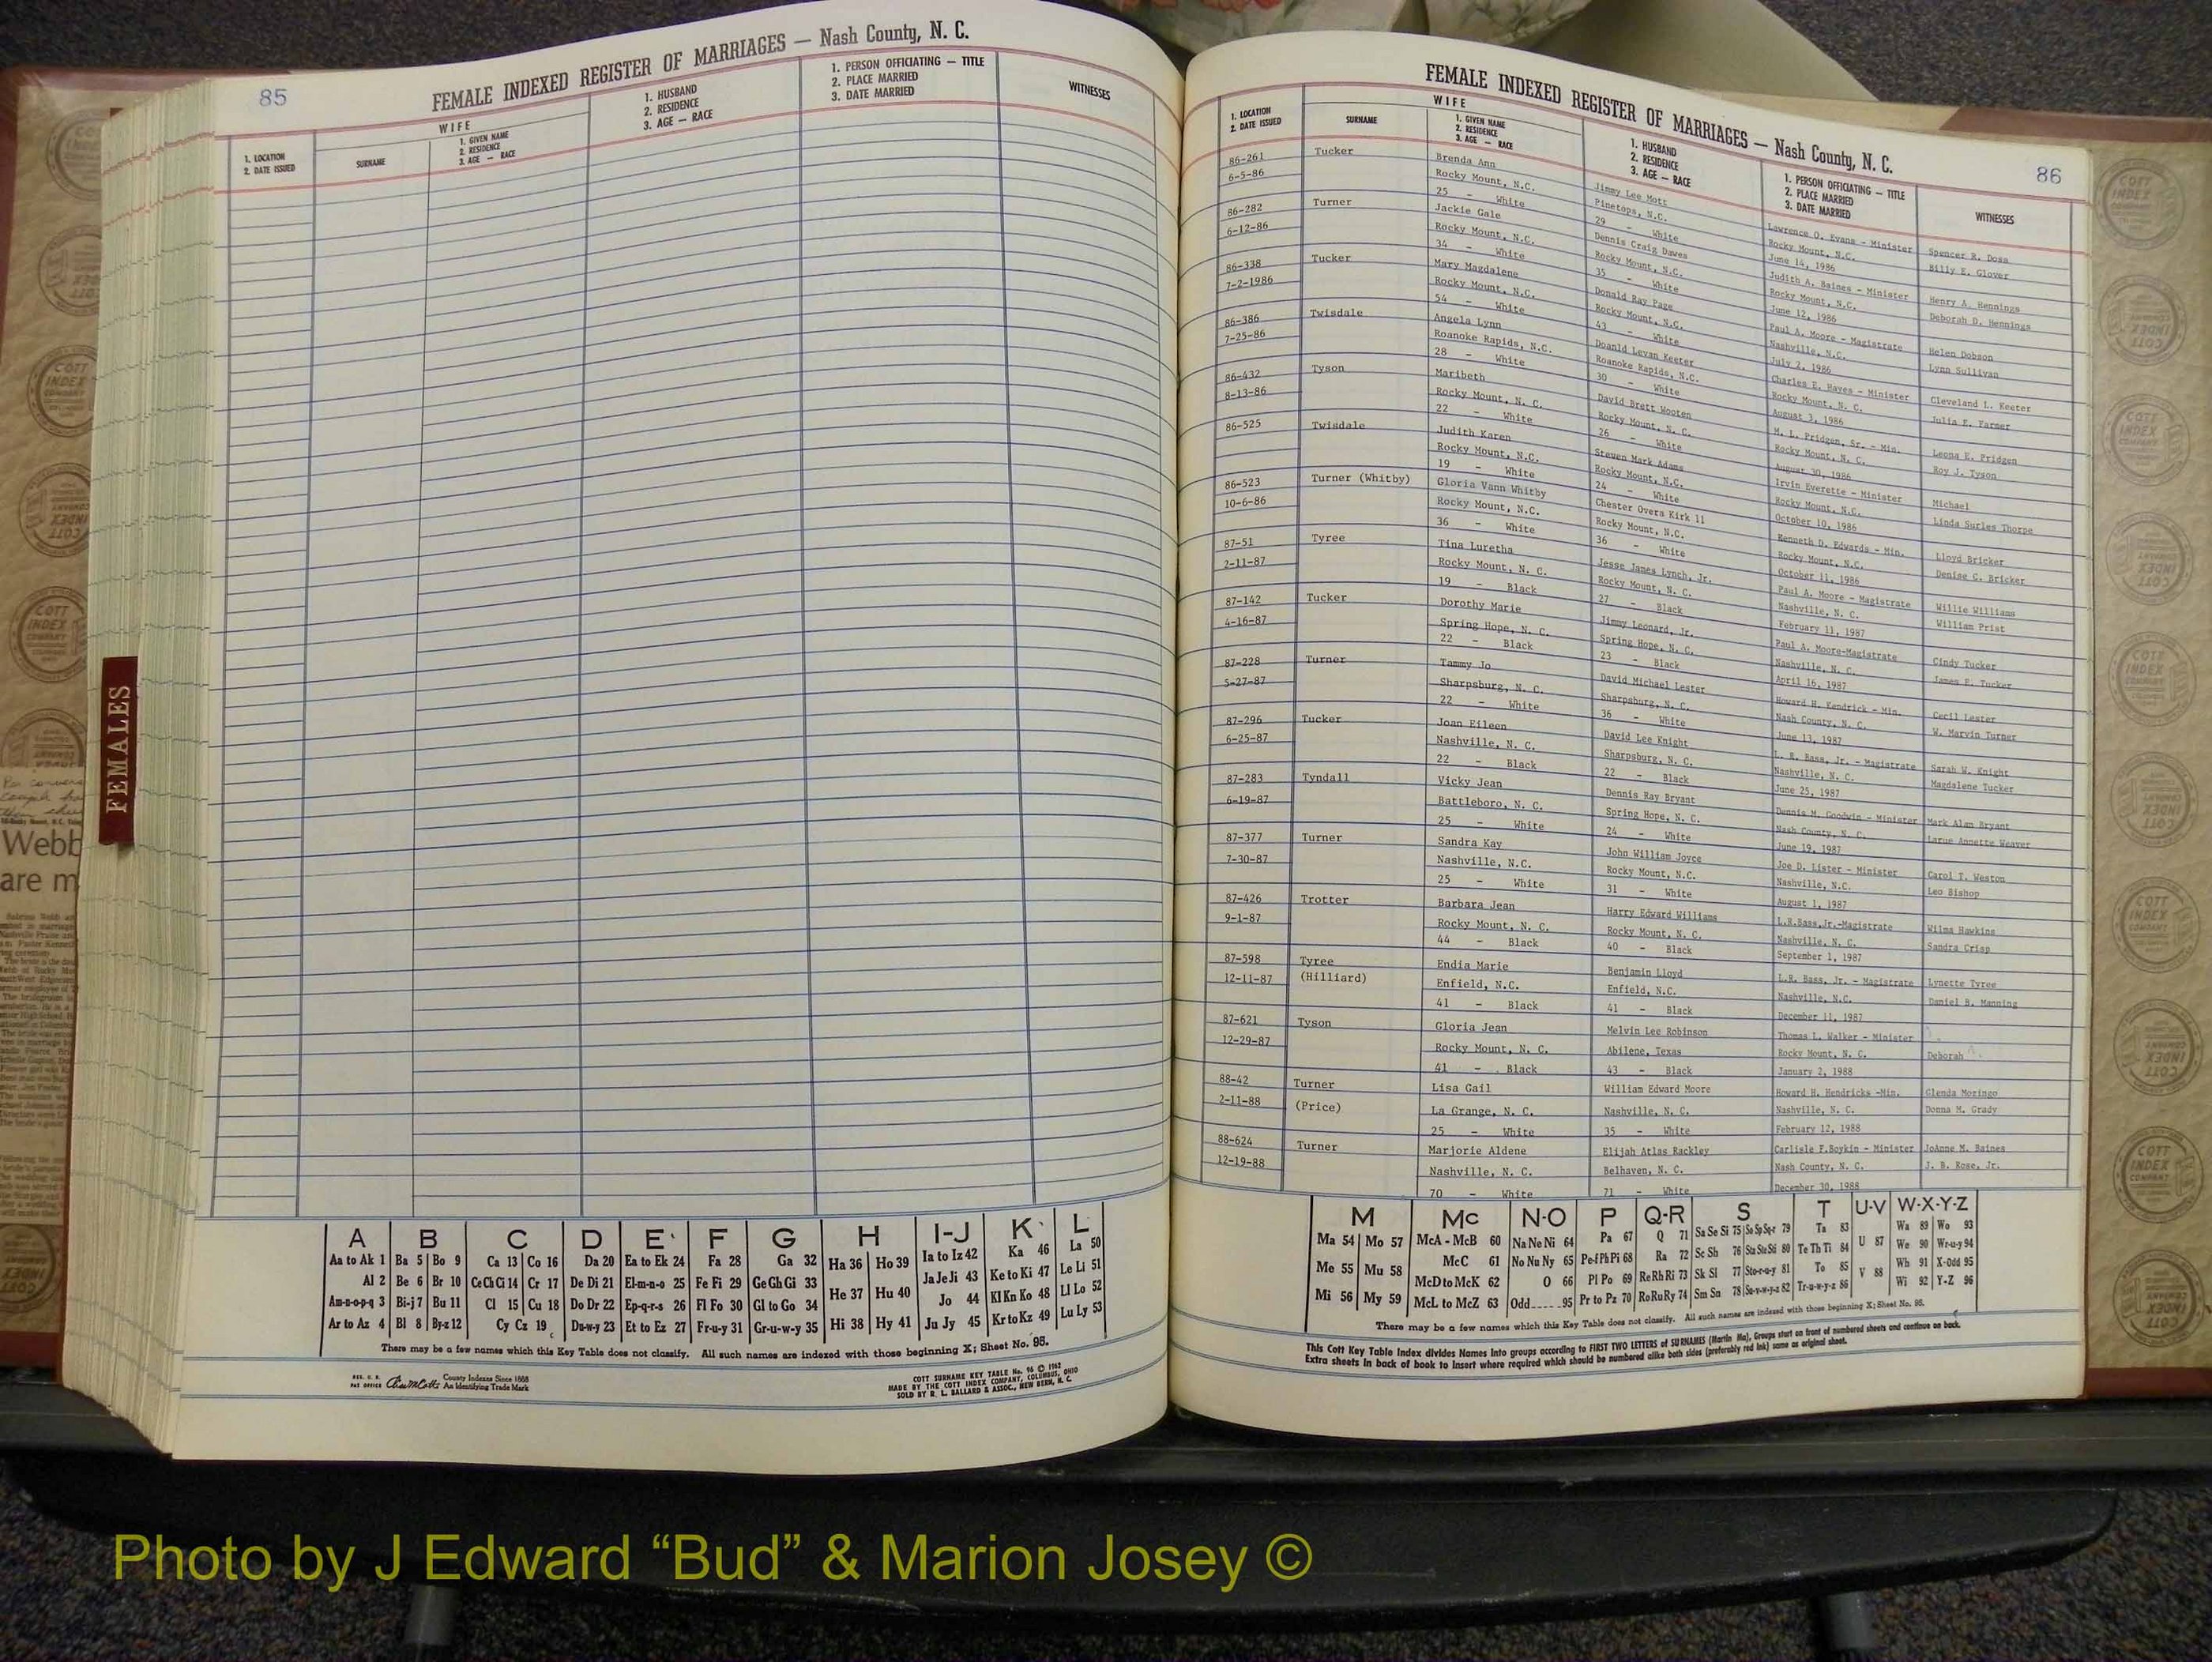 85
FEMALE INDEXED REGISTER OF MARRIAGES — Nash County, N. C.
1. LOCATION
2. DATE ISSUED
WIFE
SURNAME
1. GIVEN NAME
2. RESIDENCE
3. AGE — RACE
1. HUSBAND
2. RESIDENCE
3. AGE — RACE
1. PERSON OFFICIATING — TITLE
2. PLACE MARRIED
3. DATE MARRIED
WITNESSES
FEMALES
Webb
are m
A B C D E F G H I-J K L
Aa to Ak 1 Ba 5 Bo 9 Ca 13 Co 16 Da 20 Ea to Ek 24 Fa 28 Ga 32 Ha 36 Ho 39 Ia to Iz 42 Ka 46 La 50
Al 2 Be 6 Br 10 Ce Ch Ci 14 Cr 17 De Di 21 El-m-n-o 25 Fe Fi 29 Ge Gh Gi 33 He 37 Hu 40 Ja Je Ji 43 Ke to Ki 47 Le Li 51
Am-n-o-p-q 3 Bi-j 7 Bu 11 Cl 15 Cu 18 Do Dr 22 Ep-q-r-s 26 Fl Fo 30 Gl to Go 34 Jo 44 Kl Kn Ko 48 Ll Lo 52
Ar to Az 4 Bl 8 By-z 12 Cy Cz 19 Du-w-y 23 Et to Ez 27 Fr-u-y 31 Gr-u-w-y 35 Hi 38 Hy 41 Ju Jy 45 Kr to Kz 49 Lu Ly 53
There may be a few names which this Key Table does not classify. All such names are indexed with those beginning X; Sheet No. 95.
REG. U. S. PAT OFFICE
County Indexes Since 1888
An Identifying Trade Mark
COTT SURNAME KEY TABLE No. 96 © 1962
MADE BY THE COTT INDEX COMPANY, COLUMBUS, OHIO
SOLD BY R. L. BALLARD & ASSOC., NEW BERN, N. C.
FEMALE INDEXED REGISTER OF MARRIAGES — Nash County, N. C.
86
1. LOCATION
2. DATE ISSUED
WIFE
SURNAME
1. GIVEN NAME
2. RESIDENCE
3. AGE — RACE
1. HUSBAND
2. RESIDENCE
3. AGE — RACE
1. PERSON OFFICIATING — TITLE
2. PLACE MARRIED
3. DATE MARRIED
WITNESSES
86-261 Tucker Brenda Ann Jimmy Lee Mott Lawrence O. Evans - Minister Spencer R. Doss
6-5-86 Rocky Mount, N.C. Pinetops, N.C. Rocky Mount, N.C. Billy E. Glover
25 - White 29 - White June 14, 1986
86-282 Turner Jackie Gale Dennis Craig Dawes Judith A. Baines - Minister Henry A. Hennings
6-12-86 Rocky Mount, N.C. Rocky Mount, N.C. Rocky Mount, N.C. Deborah D. Hennings
34 - White 35 - White June 12, 1986
86-338 Tucker Mary Magdalene Donald Ray Page Paul A. Moore - Magistrate Helen Dobson
7-2-1986 Rocky Mount, N.C. Rocky Mount, N.C. Nashville, N.C. Lynn Sullivan
54 - White 43 - White July 2, 1986
86-386 Twisdale Angela Lynn Doanld Levan Keeter Charles E. Hayes - Minister Cleveland L. Keeter
7-25-86 Roanoke Rapids, N.C. Roanoke Rapids, N.C. Rocky Mount, N. C. Julia E. Farner
28 - White 30 - White August 3, 1986
86-432 Tyson Maribeth David Brett Wooten M. L. Pridgen, Sr. - Min. Leona E. Pridgen
8-13-86 Rocky Mount, N. C. Rocky Mount, N. C. Rocky Mount, N. C. Roy J. Tyson
22 - White 26 - White August 30, 1986
86-525 Twisdale Judith Karen Steven Mark Adams Irvin Everette - Minister Michael
Rocky Mount, N.C. Rocky Mount, N.C. Rocky Mount, N.C. Linda Surles Thorpe
19 - White 24 - White October 10, 1986
86-523 Turner (Whitby) Gloria Vann Whitby Chester Overa Kirk 11 Kenneth D. Edwards - Min. Lloyd Bricker
10-6-86 Rocky Mount, N.C. Rocky Mount, N.C. Rocky Mount, N.C. Denise C. Bricker
36 - White 36 - White October 11, 1986
87-51 Tyree Tina Luretha Jesse James Lynch, Jr. Paul A. Moore - Magistrate Willie Williams
2-11-87 Rocky Mount, N. C. Rocky Mount, N. C. Nashville, N. C. William Prist
19 - Black 27 - Black February 11, 1987
87-142 Tucker Dorothy Marie Jimmy Leonard, Jr. Paul A. Moore-Magistrate Cindy Tucker
4-16-87 Spring Hope, N. C. Spring Hope, N. C. Nashville, N. C. James E. Tucker
22 - Black 23 - Black April 16, 1987
87-228 Turner Tammy Jo David Michael Lester Howard H. Kendrick - Min. Cecil Lester
5-27-87 Sharpsburg, N. C. Sharpsburg, N. C. Nash County, N. C. W. Marvin Turner
22 - White 36 - White June 13, 1987
87-296 Tucker Joan Eileen David Lee Knight L. R. Bass, Jr. - Magistrate Sarah W. Knight
6-25-87 Nashville, N. C. Sharpsburg, N. C. Nashville, N. C. Magdalene Tucker
22 - Black 22 - Black June 25, 1987
87-283 Tyndall Vicky Jean Dennis Ray Bryant Dennis M. Goodwin - Minister Mark Alan Bryant
6-19-87 Battleboro, N. C. Spring Hope, N. C. Nash County, N. C. Larue Annette Weaver
25 - White 24 - White June 19, 1987
87-377 Turner Sandra Kay John William Joyce Joe D. Lister - Minister Carol T. Weston
7-30-87 Nashville, N.C. Rocky Mount, N.C. Nashville, N.C. Leo Bishop
25 - White 31 - White August 1, 1987
87-426 Trotter Barbara Jean Harry Edward Williams L.R.Bass,Jr.-Magistrate Wilma Hawkins
9-1-87 Rocky Mount, N. C. Rocky Mount, N. C. Nashville, N. C. Sandra Crisp
44 - Black 40 - Black September 1, 1987
87-598 Tyree Endia Marie Benjamin Lloyd L.R. Bass, Jr. - Magistrate Lynette Tyree
12-11-87 (Hilliard) Enfield, N.C. Enfield, N.C. Nashville, N.C. Daniel B. Manning
41 - Black 41 - Black December 11, 1987
87-621 Tyson Gloria Jean Melvin Lee Robinson Thomas L. Walker - Minister
12-29-87 Rocky Mount, N. C. Abilene, Texas Rocky Mount, N. C. Deborah
41 - Black 43 - Black January 2, 1988
88-42 Turner Lisa Gail William Edward Moore Howard H. Hendricks -Min. Glenda Mozingo
2-11-88 (Price) La Grange, N. C. Nashville, N. C. Nashville, N. C. Donna M. Grady
25 - White 35 - White February 12, 1988
88-624 Turner Marjorie Aldene Elijah Atlas Rackley Carlisle F.Boykin - Minister JoAnne M. Baines
12-19-88 Nashville, N. C. Belhaven, N. C. Nash County, N. C. J. B. Rose, Jr.
70 - White 71 - White December 30, 1988
M Mc N-O P Q-R S T U-V W-X-Y-Z
Ma 54 Mo 57 McA - McB 60 Na Ne Ni 64 Pa 67 Q 71 Sa Se Si 75 So Sp Sq-r 79 Ta 83 U 87 Wa 89 Wo 93
Me 55 Mu 58 McC 61 No Nu Ny 65 Pe-Ph Pi 68 Ra 72 Sc Sh 76 Sta Ste Sti 80 Te Th Ti 84 We 90 Wr-u-y 94
McD to McK 62 O 66 Pl Po 69 Re Rh Ri 73 Sk Sl 77 Sto-r-u-y 81 To 85 V 88 Wh 91 X-Odd 95
Mi 56 My 59 McL to McZ 63 Odd 95 Pr to Pz 70 Ro Ru Ry 74 Sm Sn 78 Su-v-w-y-z 82 Tr-u-w-y-z 86 Wi 92 Y-Z 96
There may be a few names which this Key Table does not classify. All such names are indexed with those beginning X; Sheet No. 95.
This Cott Key Table Index divides Names into groups according to FIRST TWO LETTERS of SURNAMES (Martin Ma), Groups start on front of numbered sheets and continue on back.
Extra sheets in back of book to insert where required which should be numbered alike both sides (preferably red ink) same as original sheet.
Photo by J Edward “Bud” & Marion Josey ©